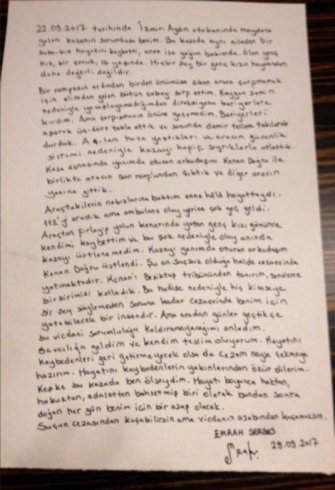 22.09.2017 tarihinde İzmir-Aydın otobanında meydana
gelen kazanın sorumlusu benim. Bu kazada aynı aileden bir
baba-kız hayatını kaybetti, anne ise yoğun bakımda. Ölen genç
kız, bir çocuk, 16 yaşında. Hiçbir şey bir genç kızın hayatından
daha değerli değildir.
Bir rampanın ardından birden önümüze çıkan araca çarpmamak
için elimden gelen bütün çabayı sarf ettim. Kaygan zemin
nedeniyle yavaşlayamadığımdan direksiyonu bariyerlere
kırdım. Ama çarpmanın önüne geçemedim. Bariyerleri
aşarak üç-dört takla attık ve sonunda demir tellere takılarak
durduk. Açılan hava yastıkları ve aracın güvenlik
sistemi nedeniyle kazayı hafif sıyrıklarla atlattık.
Kaza esnasında yanımda oturan arkadaşım Kenan Doğru ile
birlikte aracın sunroof'undan çıktık ve diğer aracın
yanına gittik.
Araçtakilerin nabızlarına baktım anne hâlâ hayattaydı.
112'yi aradık ama ambulans olay yerine çok geç geldi.
Araçtan fırlayıp yolun kenarında yatan genç kızı görünce
kendimi kaybettim ve bu şok nedeniyle olay anında
kazayı üstlenemedim. Kazayı yanımda oturan arkadaşım
Kenan Doğru üstlendi. Şu an suçsuz olduğu halde cezaevinde
yatmaktadır. Kenan'ı Beşiktaş tribününden tanırım, senelerce
birbirimizi kolladık. Bu hadise nedeniyle hiç kimseye
bir şey söylemeden sonuna kadar cezaevinde benim için
yatabilecek bir insandır. Ama aradan günler geçtikçe
bu vicdani sorumluluğu kaldıramayacağımı anladım.
Savcılığa geldim ve kendim teslim oluyorum. Hayatını
kaybedenleri geri getirmeyecek olsa da cezam neyse çekmeye
hazırım. Hayatını kaybedenlerin yakınlarından özür dilerim.
Keşke bu kazada ben ölseydim. Hayatı boyunca haktan,
hukuktan, adaletten bahsetmiş biri olarak bundan sonra
doğan her gün benim için bir azap olacak.
Suçun cezasından kaçabilirsin ama vicdanın azabından kaçamazsın.
EMRAH SERBES
29.09.2017